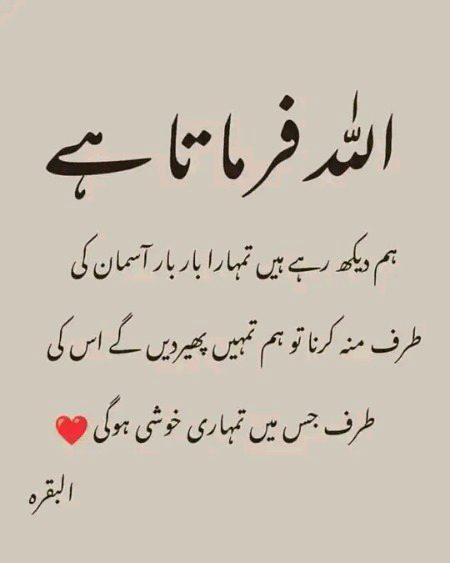 اللہ فرماتا ہے
ہم دیکھ رہے ہیں تمہارا بار بار آسمان کی
طرف منہ کرنا تو ہم تمہیں پھیردیں گے اس کی
طرف جس میں تمہاری خوشی ہوگی ❤️
البقرہ